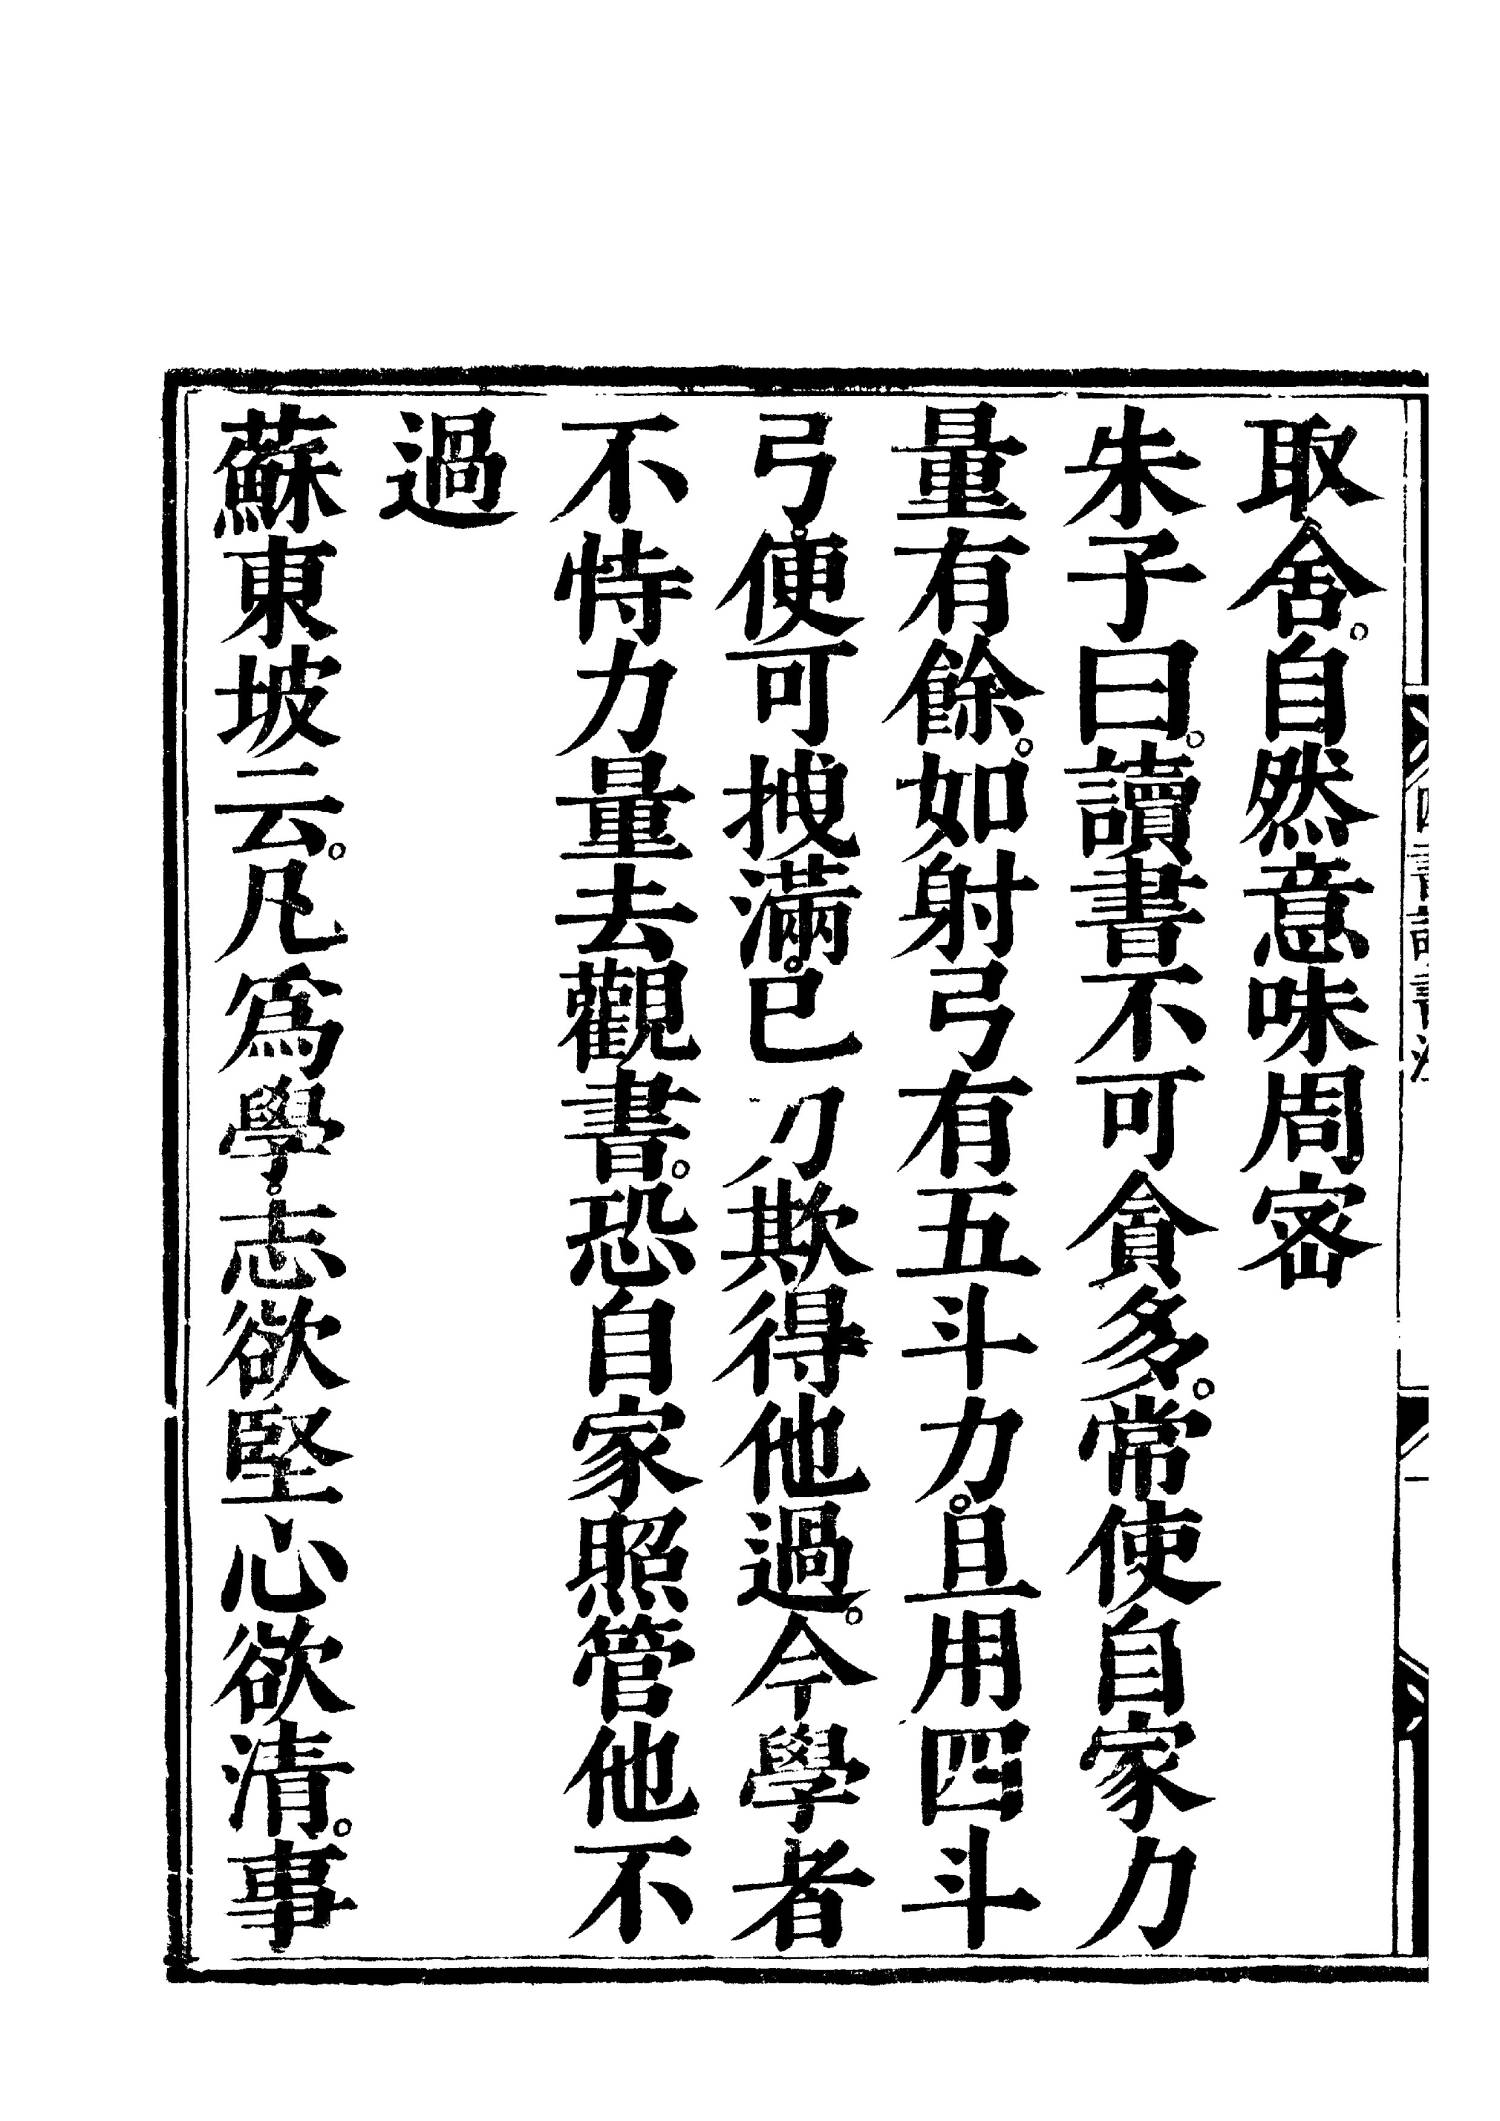 取舍。自然意味周宻
朱子曰。讀書不可貪多。常使自家力
量有餘。如射弓有五斗力。且用四斗
弓。便可拽滿。巳力欺得他過。今學者
不恃力量去觀書。恐自家照管他不
過
蘇東坡云。凡爲學。志欲堅心欲清。事